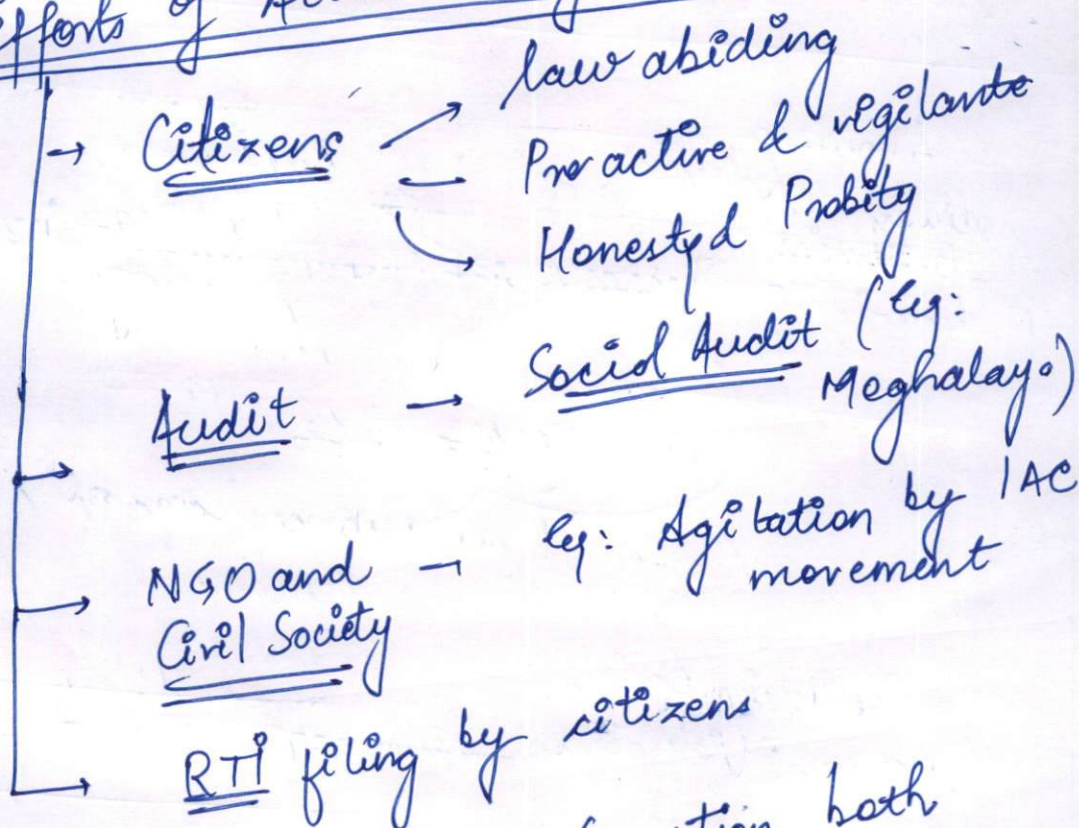 efforts of
Citizens → law abiding
→ Pro active & vigilante
→ Honesty & Probity
Audit → Social Audit (eg:
Meghalaya)
NGO and → eg: Agitation by IAC
Civil Society movement
RTI filing by citizens
both